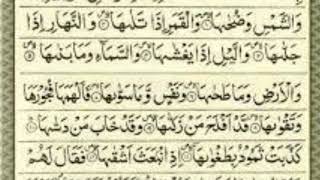 وَالشَّمْسِ وَضُحٰىهَا ۝ وَالْقَمَرِ اِذَا تَلٰىهَا ۝ وَالنَّهَارِ اِذَا
جَلّٰىهَا ۝ وَالَّيْلِ اِذَا يَغْشٰىهَا ۝ وَالسَّمَآءِ وَمَا بَنٰىهَا ۝
وَالْاَرْضِ وَمَا طَحٰىهَا ۝ وَنَفْسٍ وَّمَا سَوّٰىهَا ۝ فَاَلْهَمَهَا فُجُوْرَهَا
وَتَقْوٰىهَا ۝ قَدْ اَفْلَحَ مَنْ زَكّٰىهَا ۝ وَقَدْ خَابَ مَنْ دَسّٰىهَا ۝
كَذَّبَتْ ثَمُوْدُ بِطَغْوٰىهَآ ۝ اِذِ انْۢبَعَثَ اَشْقٰىهَا ۝ فَقَالَ لَهُمْ